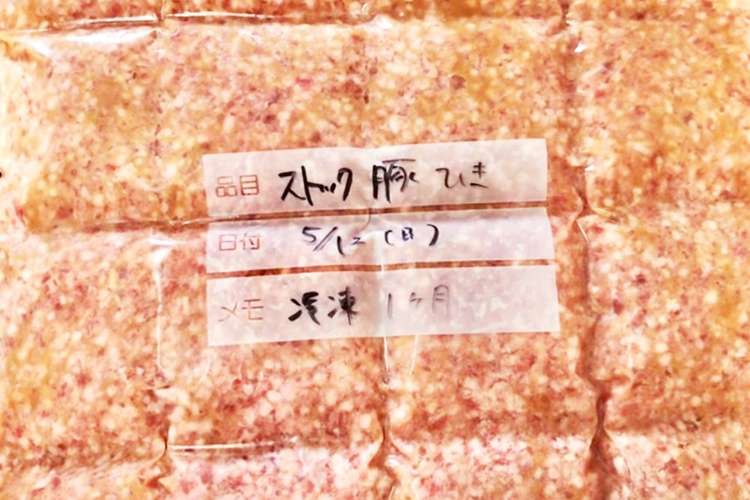 品目 ストック 豚ひき
日付 5/12(日)
メモ 冷凍 1ヶ月